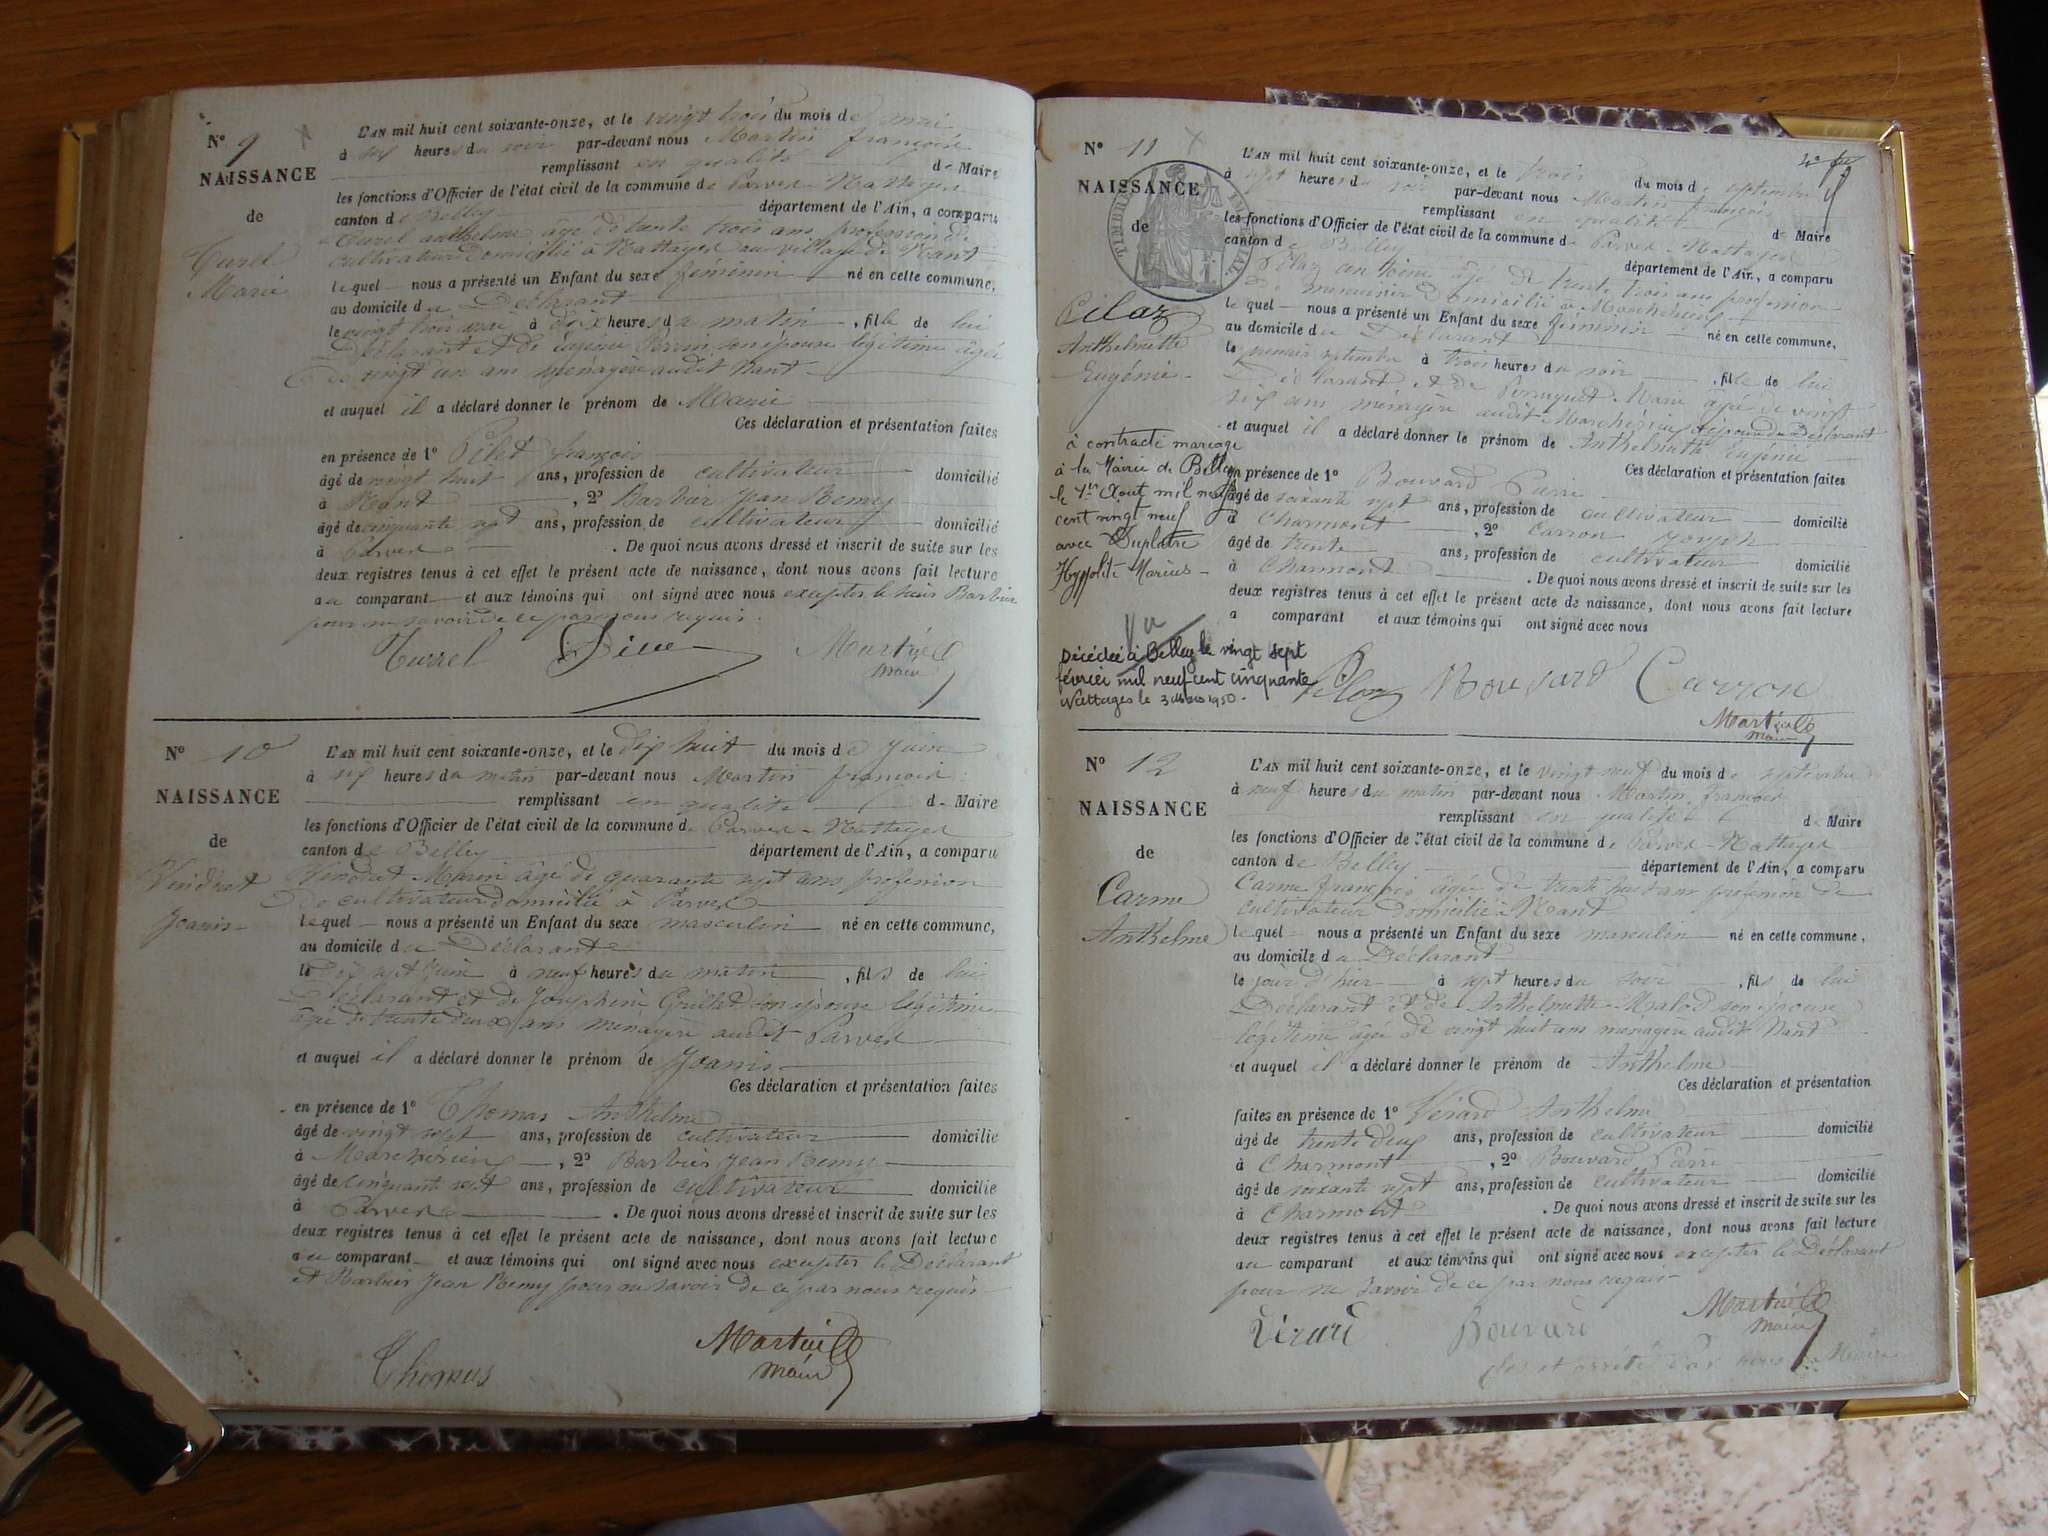 N° 9
NAISSANCE
de
Curel
Marie
L'AN mil huit cent soixante-onze, et le vingt trois du mois de mai
à six heures du soir par-devant nous Martin françois
remplissant en qualité de Maire
les fonctions d'Officier de l'état civil de la commune de Parves-Nattages
canton de Belley département de l'Ain, a comparu
Curel anthelme âgé de trente trois ans profession de
cultivateur domicilié à Nattages au village de Nant
lequel nous a présenté un Enfant du sexe féminin né en cette commune,
au domicile du Déclarant
le vingt trois mai à dix heures du matin, fille de lui
Déclarant et de son épouse légitime âgée
de vingt un ans ménagère audit Nant
et auquel il a déclaré donner le prénom de Marie
Ces déclaration et présentation faites
en présence de 1° françois
âgé de vingt huit ans, profession de cultivateur domicilié
à Nant, 2° Barbier Jean Remy
âgé de cinquante sept ans, profession de cultivateur domicilié
à Parves. De quoi nous avons dressé et inscrit de suite sur les
deux registres tenus à cet effet le présent acte de naissance, dont nous avons fait lecture
au comparant et aux témoins qui ont signé avec nous excepter le Barbier
pour ne savoir de ce par nous requis.
Martin
maire
N° 10
NAISSANCE
de
Vendrat
Joanis
L'AN mil huit cent soixante-onze, et le dix huit du mois de Juin
à six heures du matin par-devant nous Martin françois
remplissant en qualité de Maire
les fonctions d'Officier de l'état civil de la commune de Parves-Nattages
canton de Belley département de l'Ain, a comparu
Vendrat Marin âgé de quarante sept ans profession
de cultivateur domicilié à Parves
lequel nous a présenté un Enfant du sexe masculin né en cette commune,
au domicile du Déclarant
le dix sept Juin à neuf heures du matin, fils de lui
Déclarant et de Joséphine son épouse légitime
âgée de trente deux ans ménagère audit Parves
et auquel il a déclaré donner le prénom de Joanis
Ces déclaration et présentation faites
en présence de 1° Thomas Anthelme
âgé de vingt sept ans, profession de cultivateur domicilié
à Marchérieux, 2° Barbier Jean Remy
âgé de cinquante sept ans, profession de cultivateur domicilié
à Parves. De quoi nous avons dressé et inscrit de suite sur les
deux registres tenus à cet effet le présent acte de naissance, dont nous avons fait lecture
au comparant et aux témoins qui ont signé avec nous excepter le Déclarant
et Barbier Jean Remy pour ne savoir de ce par nous requis
Thomas
Martin
maire
N° 11
NAISSANCE
de
TIMBRE IMPÉRIAL
Pilaz
Anthelmette
Eugénie
à contracté mariage
à la Mairie de Belley
le 1er Août mil neuf
cent vingt neuf
avec Duplatre
Hyppolite Marius
Vu
Décédée à Belley le vingt sept
février mil neuf cent cinquante
Nattages le 3 Mars 1950.
L'AN mil huit cent soixante-onze, et le trois du mois de septembre
à sept heures du soir par-devant nous Martin françois
remplissant en qualité de Maire
les fonctions d'Officier de l'état civil de la commune de Parves-Nattages
canton de Belley département de l'Ain, a comparu
Pilaz âgé de trente trois ans profession
de menuisier domicilié à Marchérieux
lequel nous a présenté un Enfant du sexe féminin né en cette commune,
au domicile du Déclarant
le premier septembre à trois heures du soir, fille de lui
Déclarant et de Marie âgée de vingt
six ans ménagère audit Marchérieux épouse du Déclarant
et auquel il a déclaré donner le prénom de Anthelmette Eugénie
Ces déclaration et présentation faites
en présence de 1° Bouvard Pierre
âgé de soixante sept ans, profession de cultivateur domicilié
à Charmont, 2° Carron Joseph
âgé de trente ans, profession de cultivateur domicilié
à Charmont. De quoi nous avons dressé et inscrit de suite sur les
deux registres tenus à cet effet le présent acte de naissance, dont nous avons fait lecture
a comparant et aux témoins qui ont signé avec nous
Pilaz Bouvard Carron
Martin
maire
N° 12
NAISSANCE
de
Carme
Anthelme
L'AN mil huit cent soixante-onze, et le vingt neuf du mois de septembre
à neuf heures du matin par-devant nous Martin françois
remplissant en qualité de Maire
les fonctions d'Officier de l'état civil de la commune de Parves-Nattages
canton de Belley département de l'Ain, a comparu
Carme françois âgé de trente huit ans profession de
cultivateur domicilié à Nant
lequel nous a présenté un Enfant du sexe masculin né en cette commune,
au domicile du Déclarant
le jour d'hier à sept heures du soir, fils de lui
Déclarant et de Anthelmette Malod son épouse
légitime âgée de vingt huit ans ménagère audit Nant
et auquel il a déclaré donner le prénom de Anthelme
Ces déclaration et présentation
faites en présence de 1° Vérard Anthelme
âgé de trente deux ans, profession de cultivateur domicilié
à Charmont, 2° Bouvard Pierre
âgé de soixante sept ans, profession de cultivateur domicilié
à Charmont. De quoi nous avons dressé et inscrit de suite sur les
deux registres tenus à cet effet le présent acte de naissance, dont nous avons fait lecture
au comparant et aux témoins qui ont signé avec nous excepter le Déclarant
pour ne savoir de ce par nous requis
Vérard Bouvard
Martin
maire
Clos et arrêté par nous Maire